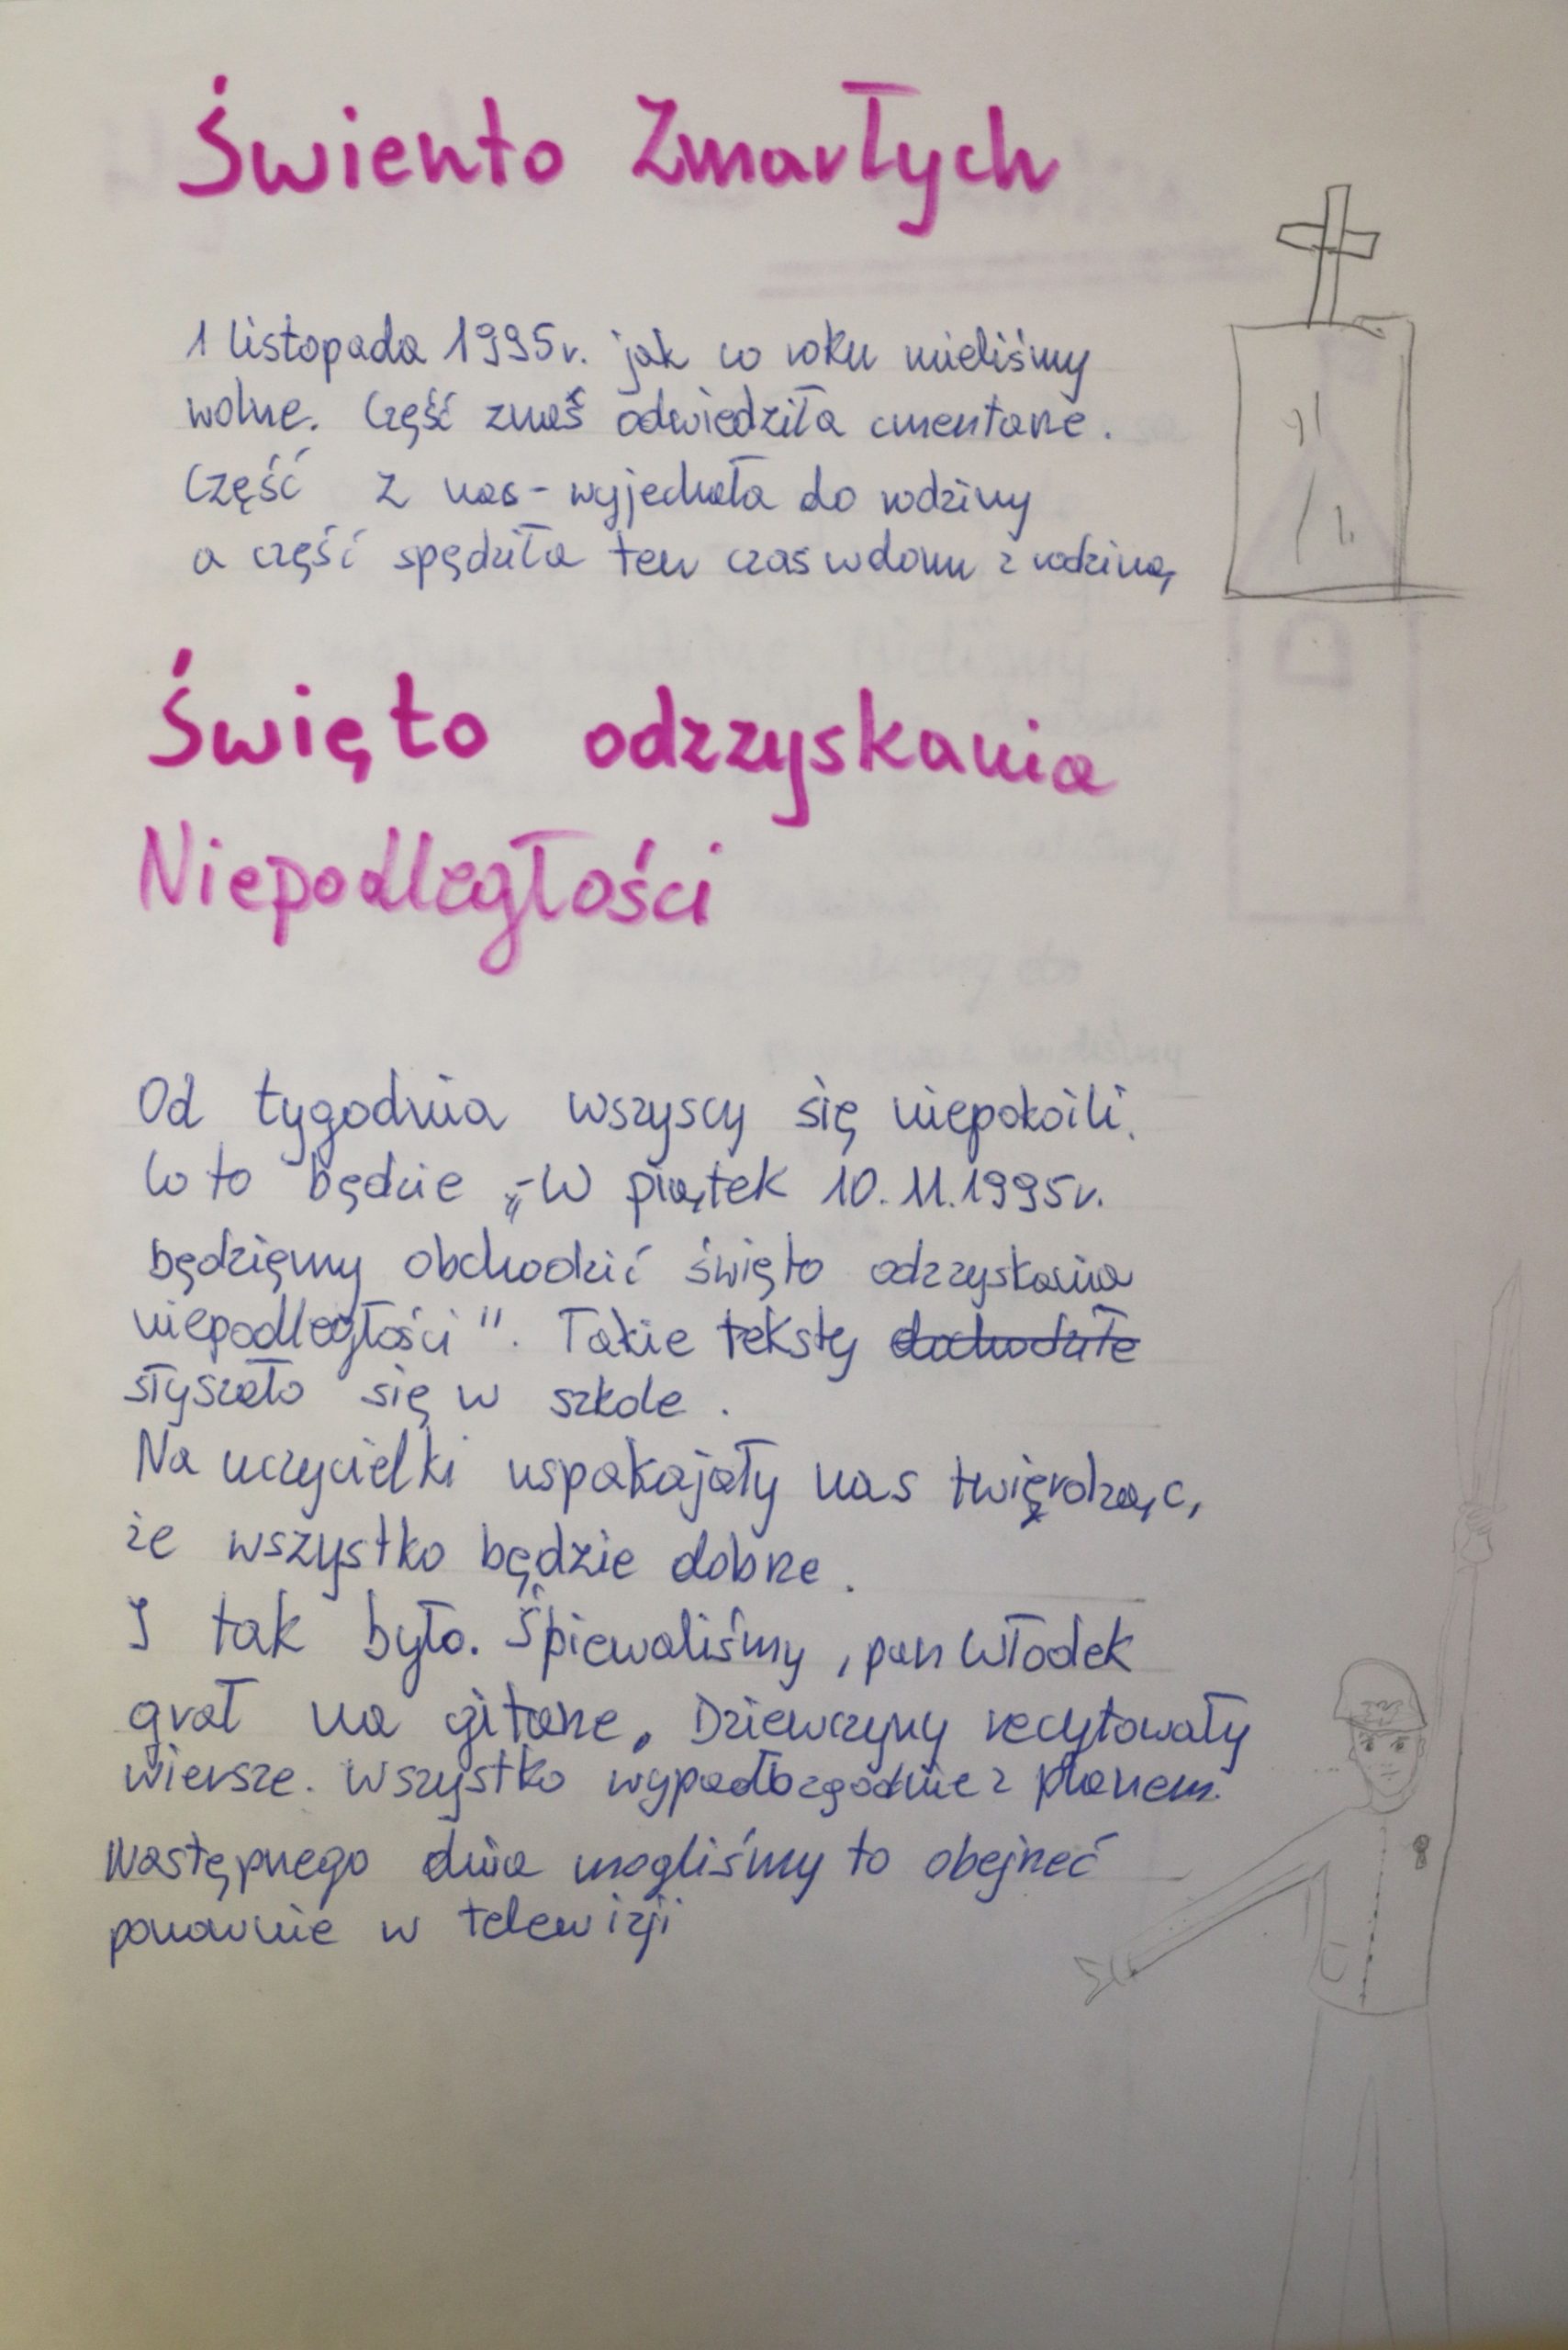 Świento Zmarłych
1 listopada 1995r. jak co roku mieliśmy
wolne. Część znaś odwiedziła cmentarze.
Część z nas - wyjechała do rodziny
a część spędziła ten czas w domu z rodziną,
Święto odzzyskania
Niepodległości
Od tygodnia wszyscy się niepokoili.
Co to będzie „-W piątek 10.11.1995r.
będzięmy obchodzić święto odzzyskania
niepodległości". Takie teksty dochodziłe
słyszało się w szkole.
Na uczycielki uspakajały nas twięrdząc,
że wszystko będzie dobrze.
I tak było. Śpiewaliśmy, pan Włodek
grał na gitarze. Dziewczyny recytowały
wiersze. Wszystko wypadło zgodnie z planem.
Następnego dnia mogliśmy to obejrzeć
ponownie w telewizji